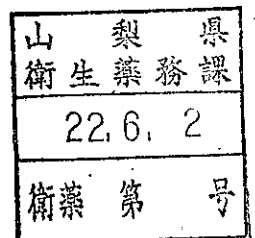 山梨県
衛生薬務課
22.6.2
衛薬第 号